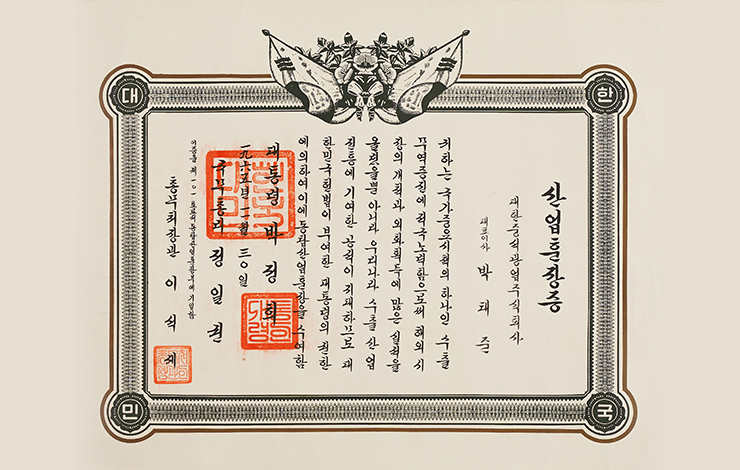 대한민국
산업훈장증
대한중석광업주식회사
대표이사 박태준
귀하는 국가중요시책의 하나인 수출
무역증진에 적극노력함으로써 해외시
장의 개척과 외화획득에 많은 실적을
올렸을뿐 아니라 우리나라 수출산업
진흥에 기여한 공적이 지대하므로 대
한민국헌법이 부여한 대통령의 권한
에의하여이에 동탑산업훈장을 수여함
대통령 박정희
一九六五년 一一월 三○일
국무총리 정일권
이증을 제 호로써 동탑산업훈장부에 기입함
총무처장관 이석제